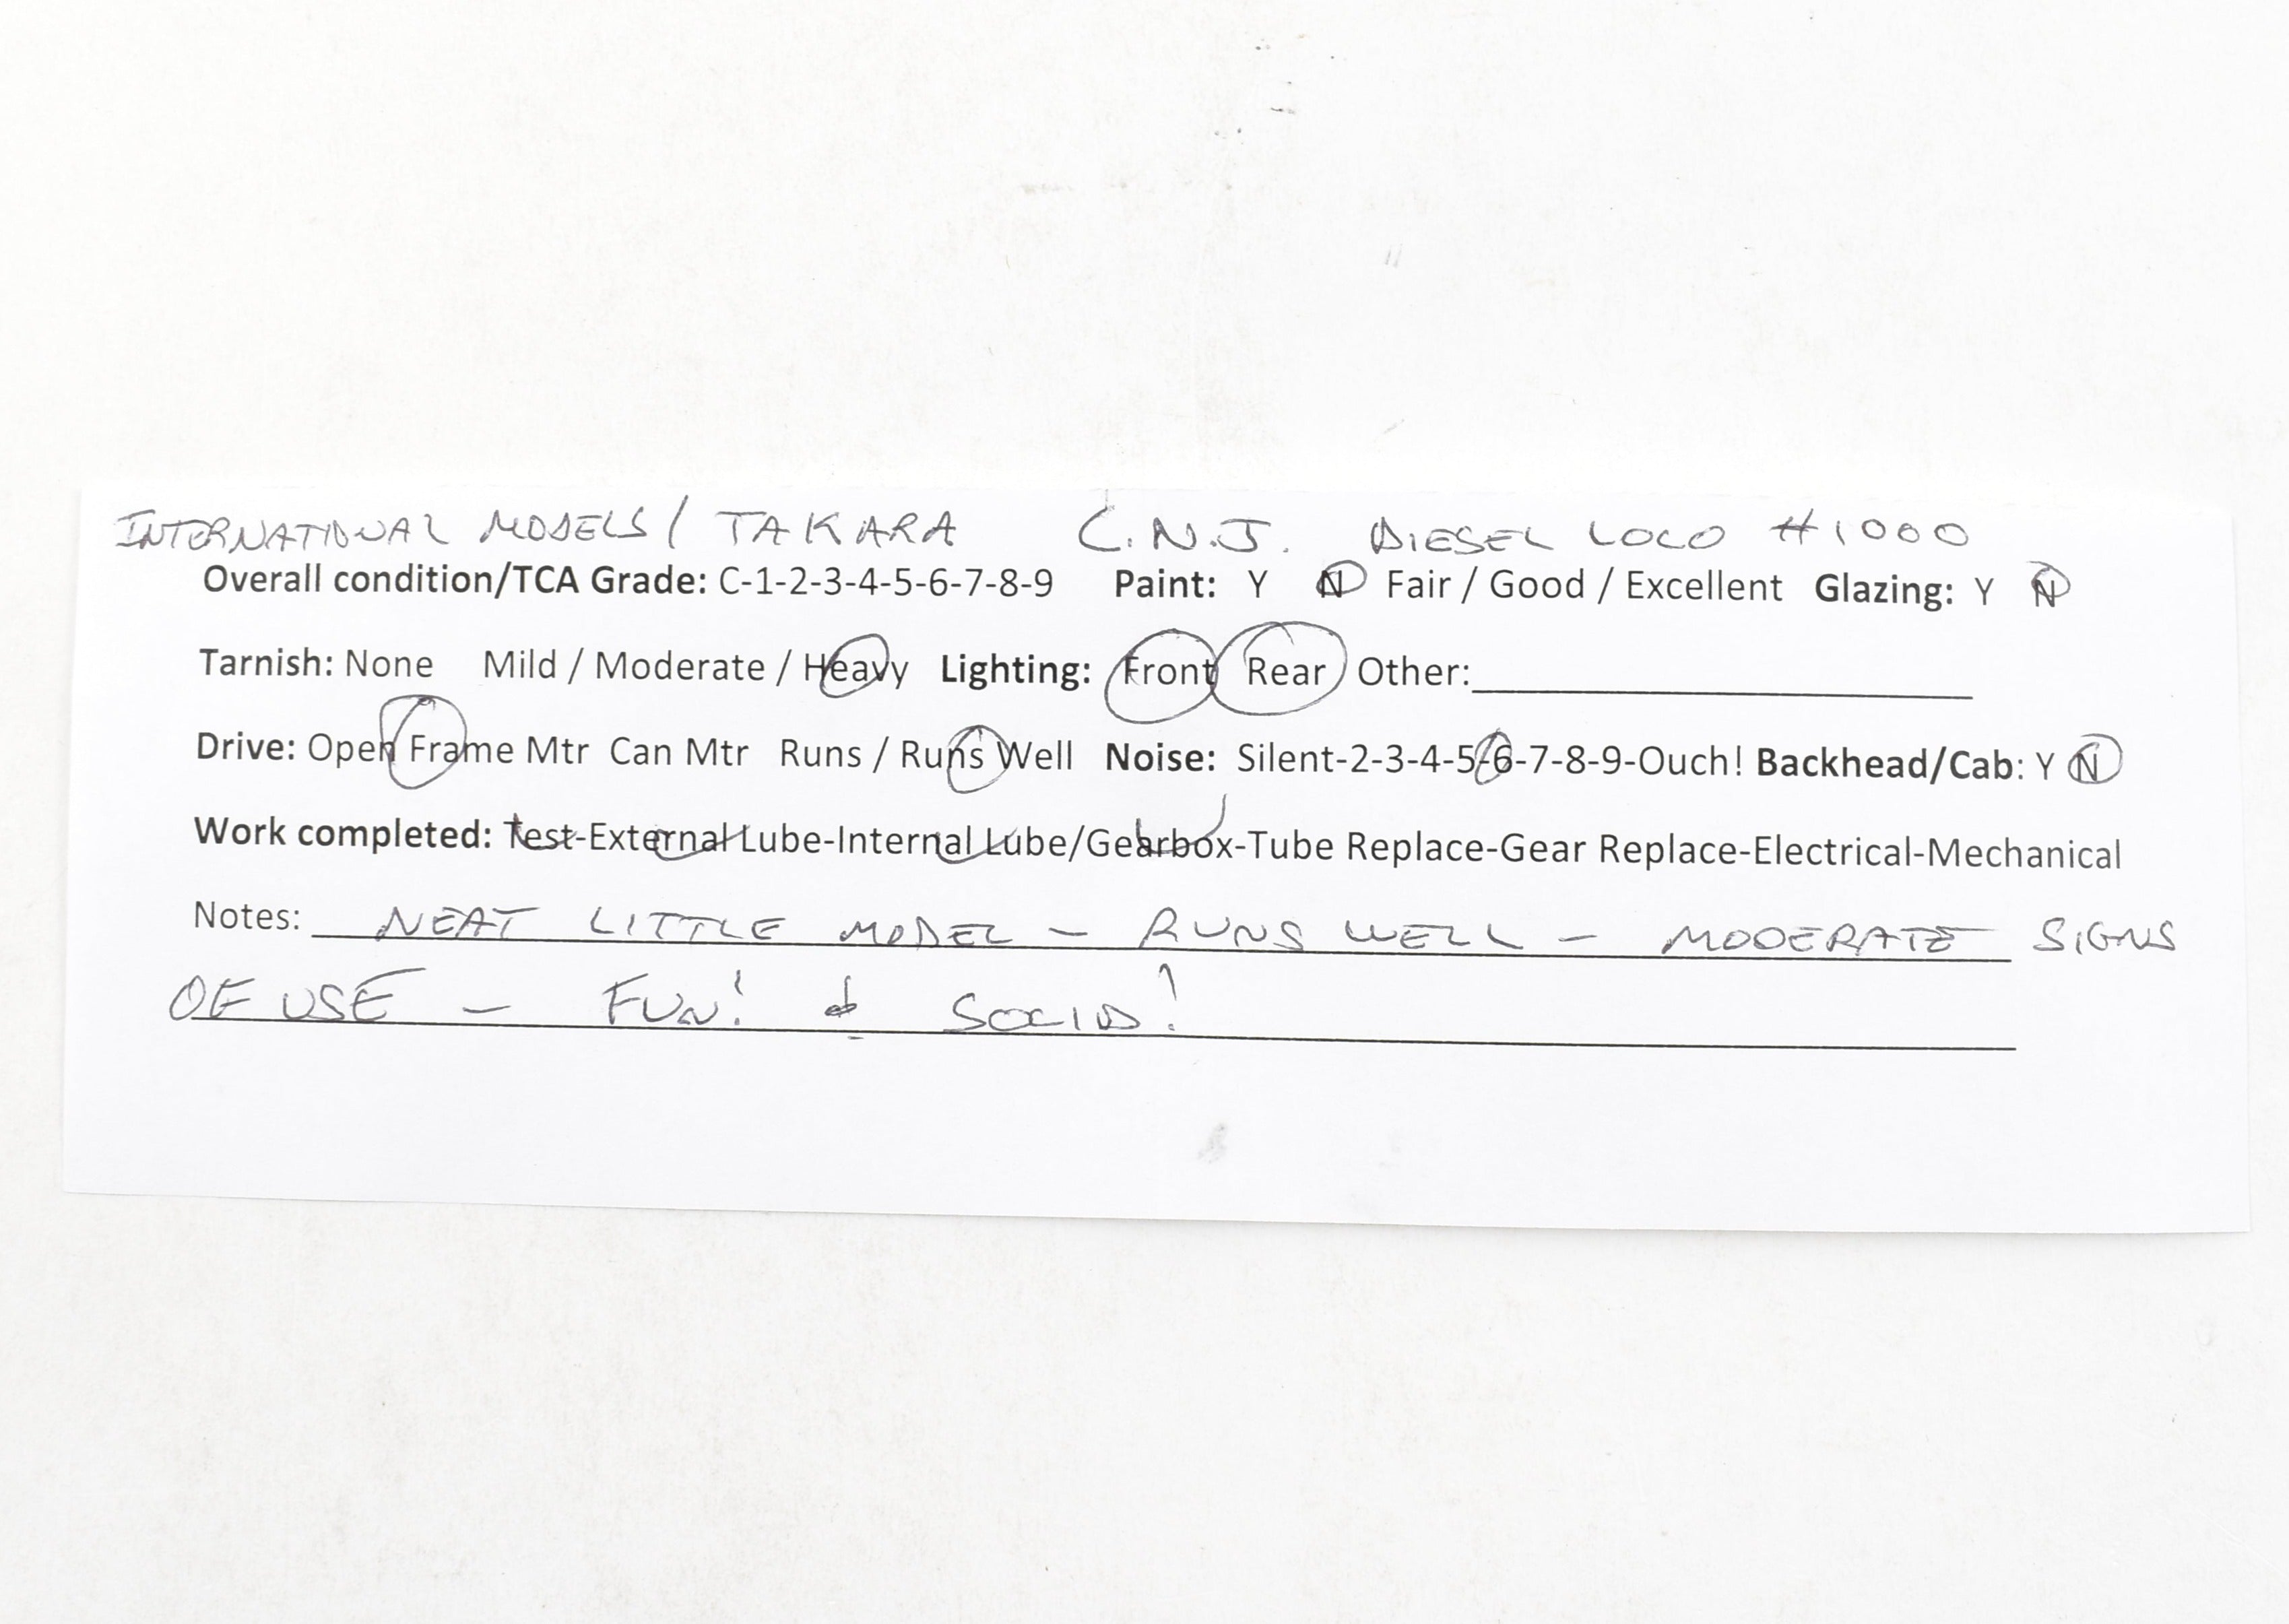 INTERNATIONAL MODELS / TAKARA C.N.J. DIESEL LOCO #1000
Overall condition/TCA Grade: C-1-2-3-4-5-6-7-8-9 Paint: Y N Fair / Good / Excellent Glazing: Y N
Tarnish: None Mild / Moderate / Heavy Lighting: Front Rear Other:
Drive: Open Frame Mtr Can Mtr Runs / Runs Well Noise: Silent-2-3-4-5-6-7-8-9-Ouch! Backhead/Cab: Y N
Work completed: Test-External Lube-Internal Lube/Gearbox-Tube Replace-Gear Replace-Electrical-Mechanical
Notes: NEAT LITTLE MODEL - RUNS WELL - MODERATE SIGNS
OF USE - FUN! & SOLID!